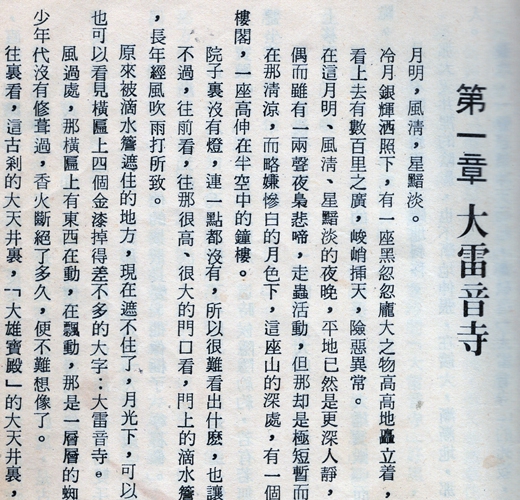 第一章 大雷音寺
月明，風清，星黯淡。
冷月銀輝洒照下，有一座黑忽忽龐大之物高高地矗立着，
看上去有數百里之廣，峻峭插天，險惡異常。
在這月明、風清、星黯淡的夜晚，平地已然是更深人靜，
偶而雖有一兩聲夜梟悲啼，走蟲活動，但那却是極短暫而
在那清涼，而略嫌慘白的月色下，這座山的深處，有一個
樓閣，一座高伸在半空中的鐘樓。
院子裏沒有燈，連一點都沒有，所以很難看出什麽，也讓
不過，往前看，往那很高、很大的門口看，門上的滴水簷
，長年經風吹雨打所致。
原來被滴水簷遮住的地方，現在遮不住了，月光下，可以
也可以看見橫匾上四個金漆掉得差不多的大字：大雷音寺。
風過處，那橫匾上有東西在動，在飄動，那是一層層的蜘
少年代沒有修葺過，香火斷絕了多久，便不難想像了。
往裏看，這古刹的大天井裏，「大雄寶殿」的大天井裏，